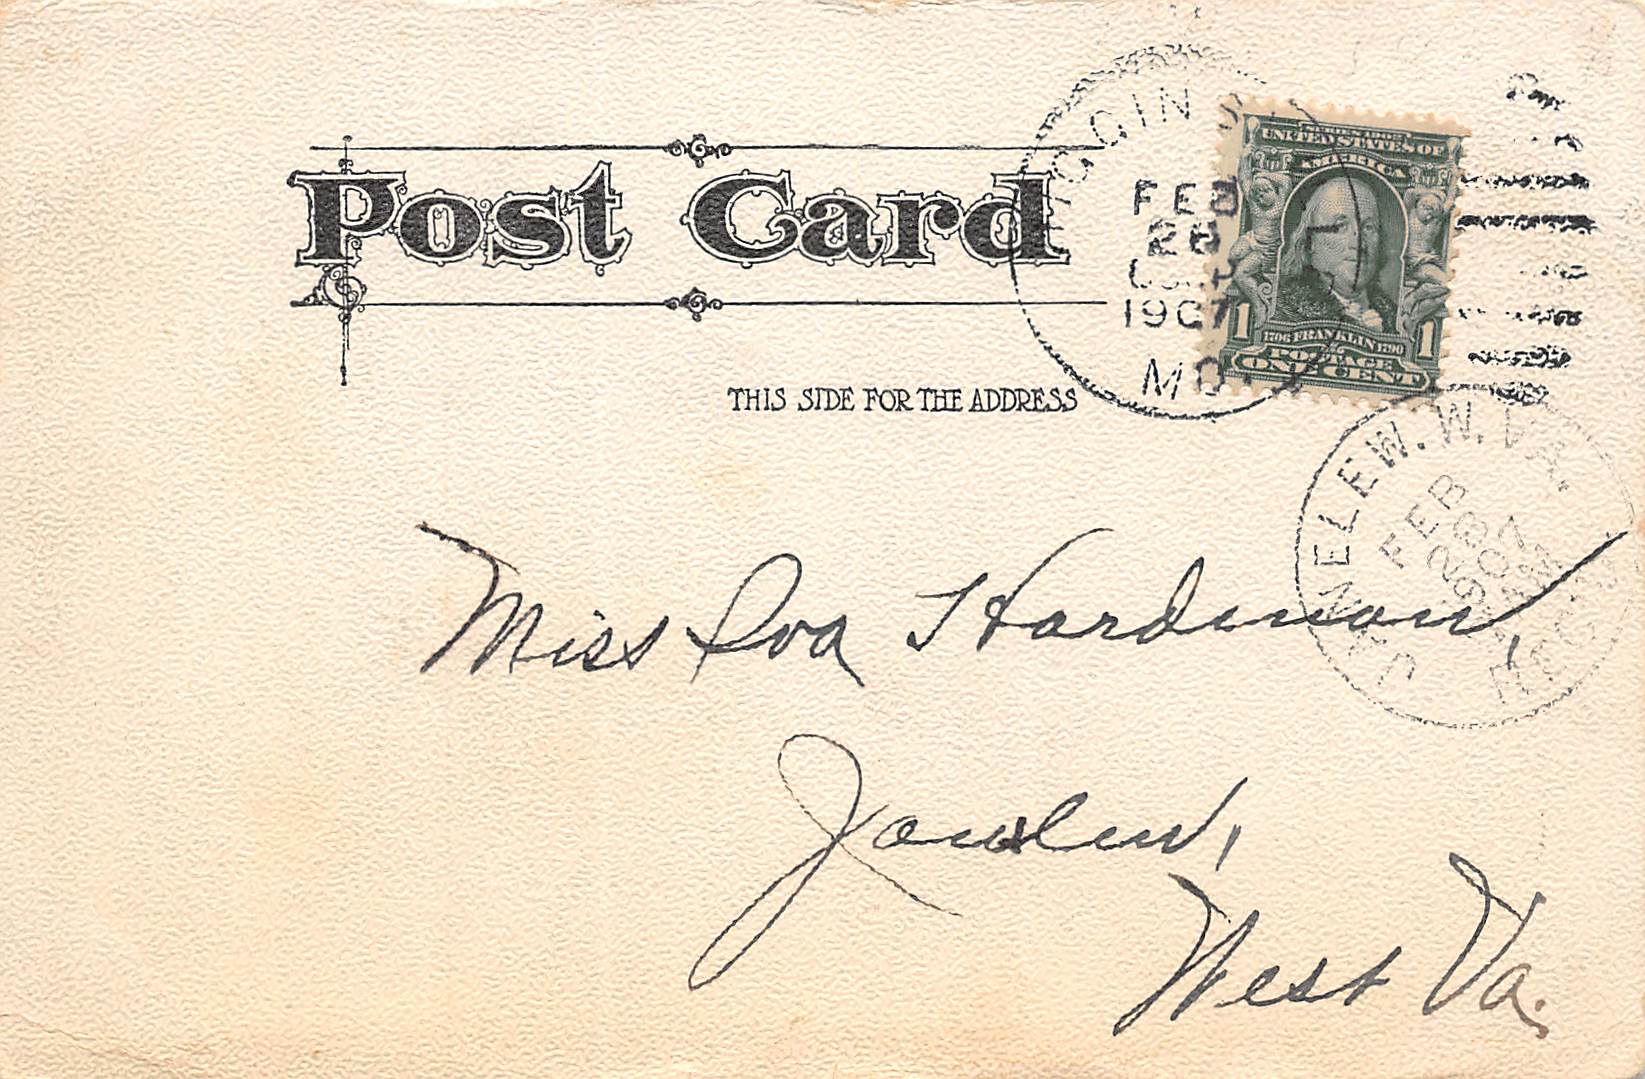 Post Card
THIS SIDE FOR THE ADDRESS
FEB
26
1907
MO.
SERIES 1902
UNITED STATES OF
AMERICA
1706 FRANKLIN 1790
1 1
POSTAGE
ONE CENT
JANELEW. W. VA.
FEB
28
1907
REC'D
Miss Iva Hardman,
Janelew,
West Va.